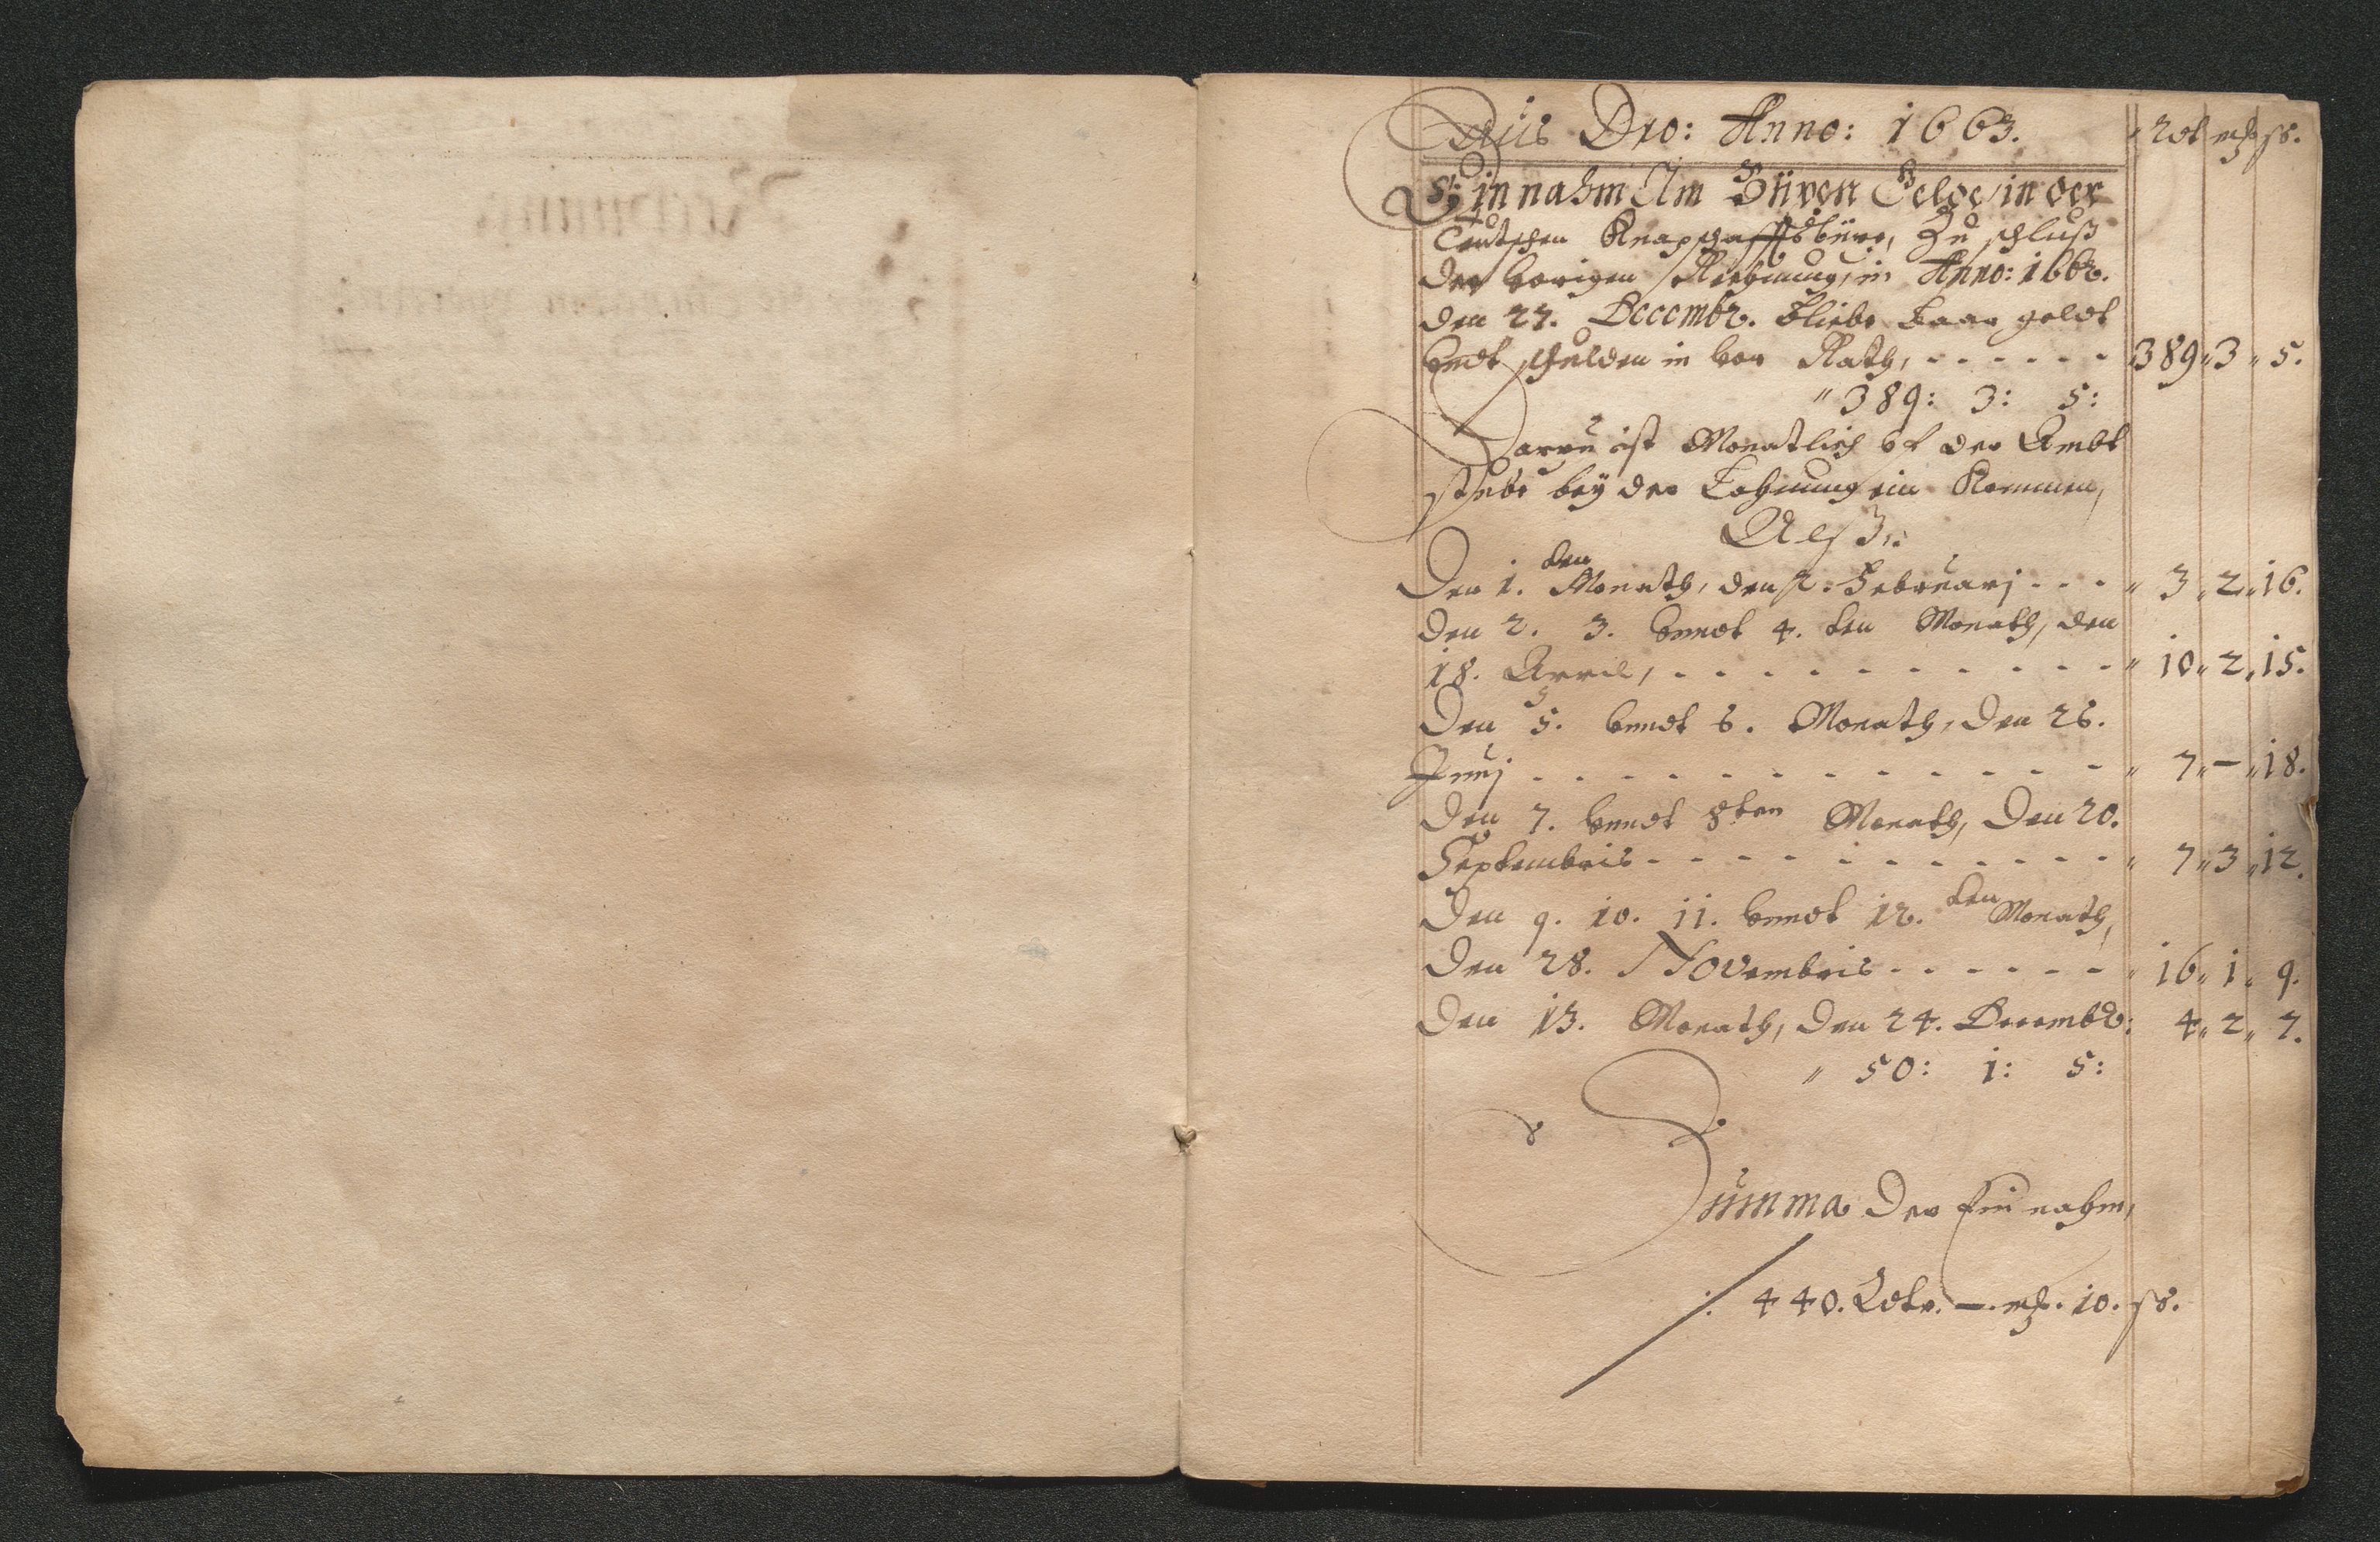 Laus Deo: Anno: 1663. Rdt mß ss.
Einnahm Am Büxen Gelde, in der
Teutschen Knapschafftsbüxe, Zu schluß
der vorigen Rechnung, in Anno: 1662.
den 27. Decembr. bliebe baar geldt
vndt schulden in vor Rath, - - - - - - 389 " 3 " 5.
" 389: 3: 5:
Darzu ist Monatlich vf der Ambt
stube bey der Lohnung ein Kommen,
Alß:
Den 1. den Monath, den 2. Februarj - - - " 3 " 2 " 16.
Den 2. 3. vnndt 4. ten Monath, den
18. April, - - - - - - - - - - " 10 " 2 " 15.
Den 5. vnndt 6. Monath, den 26.
Junj - - - - - - - - - - - - " 7 " — " 18.
Den 7. vnndt 8ten Monath, Den 20.
Septembris - - - - - - - - - - " 7 " 3 " 12.
Den 9. 10. 11. vnndt 12. ten Monath,
Den 28. Novembris - - - - - - " 16 " 1 " 9.
Den 13. Monath, den 24. Decembr: 4 " 2 " 7.
" 50: 1: 5:
Summa Der Einnahm,
: 440. Rdtr. —. mß. 10. ss.